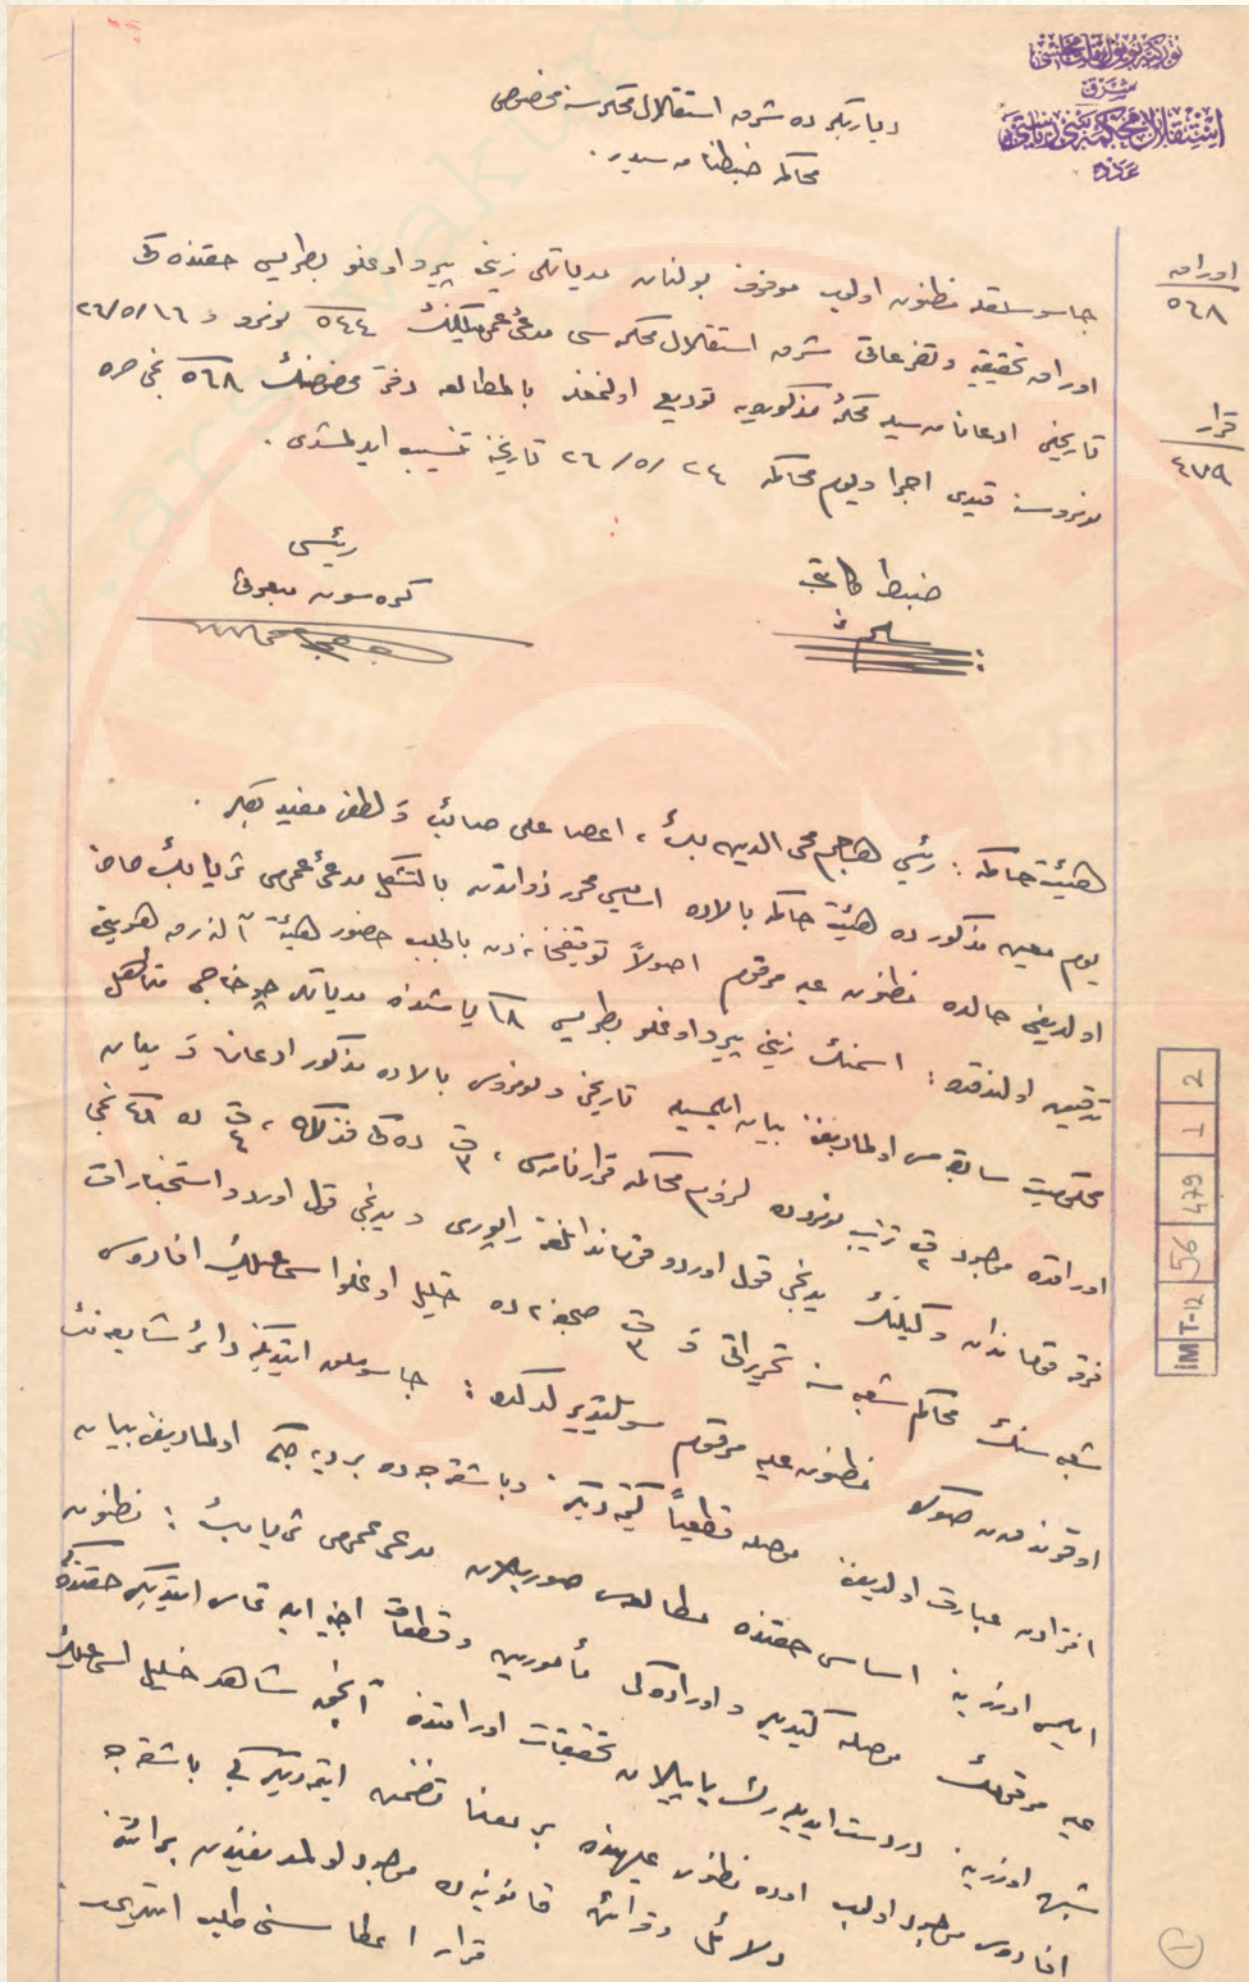 توركیه بویوك ملت مجلسی
شرق
استقلال محكمه‌سی ریاستی
عدد
دیاربكرده شرق استقلال محكمه‌سنه مخصوص
محاكمه ضبطنامه‌سیدر.
اوراق
٥٦٨
قرار
٤٧٩
جاسوسلقله مظنون اولوب موقوف بولنان مدیاتلی زینی پیره اوغلو بطریس حقنده‌كی
اوراق تحقیقیه و تفرعاتی شرق استقلال محكمه‌سی مدعی عمومیلكنك ٥٤٤ نومرو و ٢٦/٥/١٦
تاریخلی ادعانامه‌سیله محكمهٔ مذكوره‌یه تودیع اولنمغله بالمطالعه دفتر مخصوصنك ٥٦٨ نجی صره
نومروسنه قیدی اجرا و یوم محاكمه ٢٤ /٥/ ٢٦ تاریخنه تنسیب ایدلمشدی.
ضبط كاتبی
رئیسی
كره‌سون مبعوثی
هیئت حاكمه : رئیس هاجم محی الدین بك، اعضا علی صائب و لطفی مفید بكلر.
یوم معین مذكورده هیئت حاكمه بالاده اسامیسی محرر ذواتدن بالتشكل مدعی عمومی ثریا بك حاضر
اولدیغی حالده مظنون علیه مرقوم اصولاً توقیفخانه‌دن بالجلب حضور هیئته آلنه‌رق هویتی
تدقیق اولندقده : اسمنك زینی پیره اوغلو بطریس ١٨ یاشنده مدیاتلی متأهل
محكومیت سابقه‌سی اولمادیغنی بیان ایلمسیله تاریخ و نومروسی بالاده مذكور ادعانامه و بیان
اوراقده موجود ق ٢ ترتیب نومرولی لزوم محاكمه قرارنامه‌سی، ق ٣ ده‌كی فذلكه، ق ٤ ده ٤٨ نجی
فرقه قوماندان وكیلنك یدنجی قول اوردو قوماندانلغنه راپوری و یدنجی قول اوردو استخبارات
شعبه‌سنك محاكم شعبه‌سنه تحریراتی و ق ٣ صحیفه ٢ ده خلیل اوغلو اسماعیلك افاده‌سی
اوقوندقدن صوكره مظنون علیه مرقوم سویلتدیریلدكده : جاسوسلق ایتدیكنه دائر شایعه‌نك
افترادن عبارت اولدیغنی موصله قطعیاً گیتمه‌دیكنی و باشقه‌جه ده بر دیه‌جكی اولمادیغنی بیان
ایلمسی اوزرینه اساس حقنده مطالعه‌سی صوریلان مدعی عمومی ثریا بك : مظنون
علیه مرقومك موصله گیتدیكی و اوراده‌كی مأمورین و قطعات اجنبیه ایله تماس ایتدیكی حقنده‌كی
شبهه اوزرینه دردست ایدیلرك یاپیلان تحقیقات اوراقنده آنجق شاهد خلیل اسماعیلك
افاده‌سی موجود اولوب اوده مظنون علیهنده بر معنا تضمن ایتمه‌دیكی گبی باشقه‌جه
دلائل و قرائن قانونیه ده موجود اولمدیغندن برائتنه
قرار اعطاسنی طلب ایتدی.
İM T-12 56 479 1 2
١